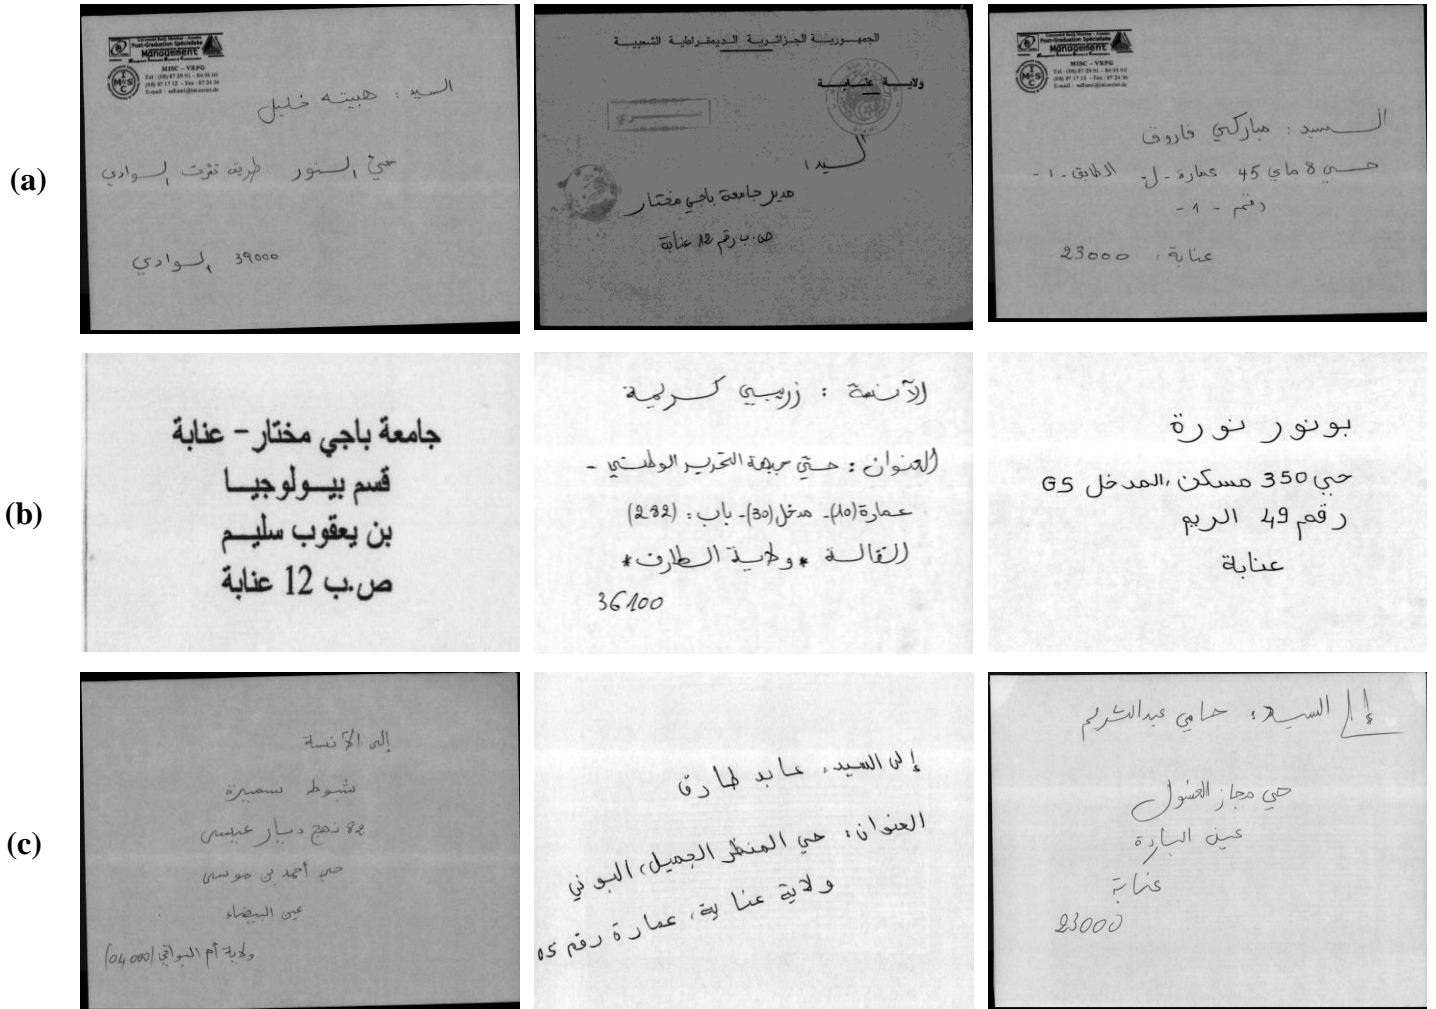 (a)
Université Badji Mokhtar - Annaba
Post-Graduation Spécialisée
Management
MISC - VRPG
السيد : هبيته خليل
حيّ النور طريق تقرت الوادي
39000 الوادي
الجمهورية الجزائرية الديمقراطية الشعبية
ولاية عنابة
سري
السيد :
مدير جامعة باجي مختار
ص.ب رقم 12 عنابة
Université Badji Mokhtar - Annaba
Post-Graduation Spécialisée
Management
MISC - VRPG
السيد : مباركي فاروق
حي 8 ماي 45 عمارة - ل - الطابق - 1 -
رقم - 1 -
عنابة : 23000
(b)
جامعة باجي مختار - عنابة
قسم بيولوجيا
بن يعقوب سليم
ص.ب 12 عنابة
الآنسة : زريبي كريمة
العنوان : حيّ جبهة التحرير الوطني -
عمارة (10) - مدخل (30) - باب : (282)
القالة * ولاية الطارف *
36100
بونور نورة
حي 350 مسكن، المدخل G5
رقم 49 الريم
عنابة
(c)
إلى الآنسة
شبوط سميرة
82 نهج ديار عيسى
حي أحمد بن موسى
عين البيضاء
ولاية أم البواقي (04000)
إلى السيد : عابد طارق
العنوان : حي المنظر الجميل، البوني
ولاية عنابة، عمارة رقم 05
إلى السيد : حامي عبدالكريم
حي مجاز الغسول
عين الباردة
عنابة
23000